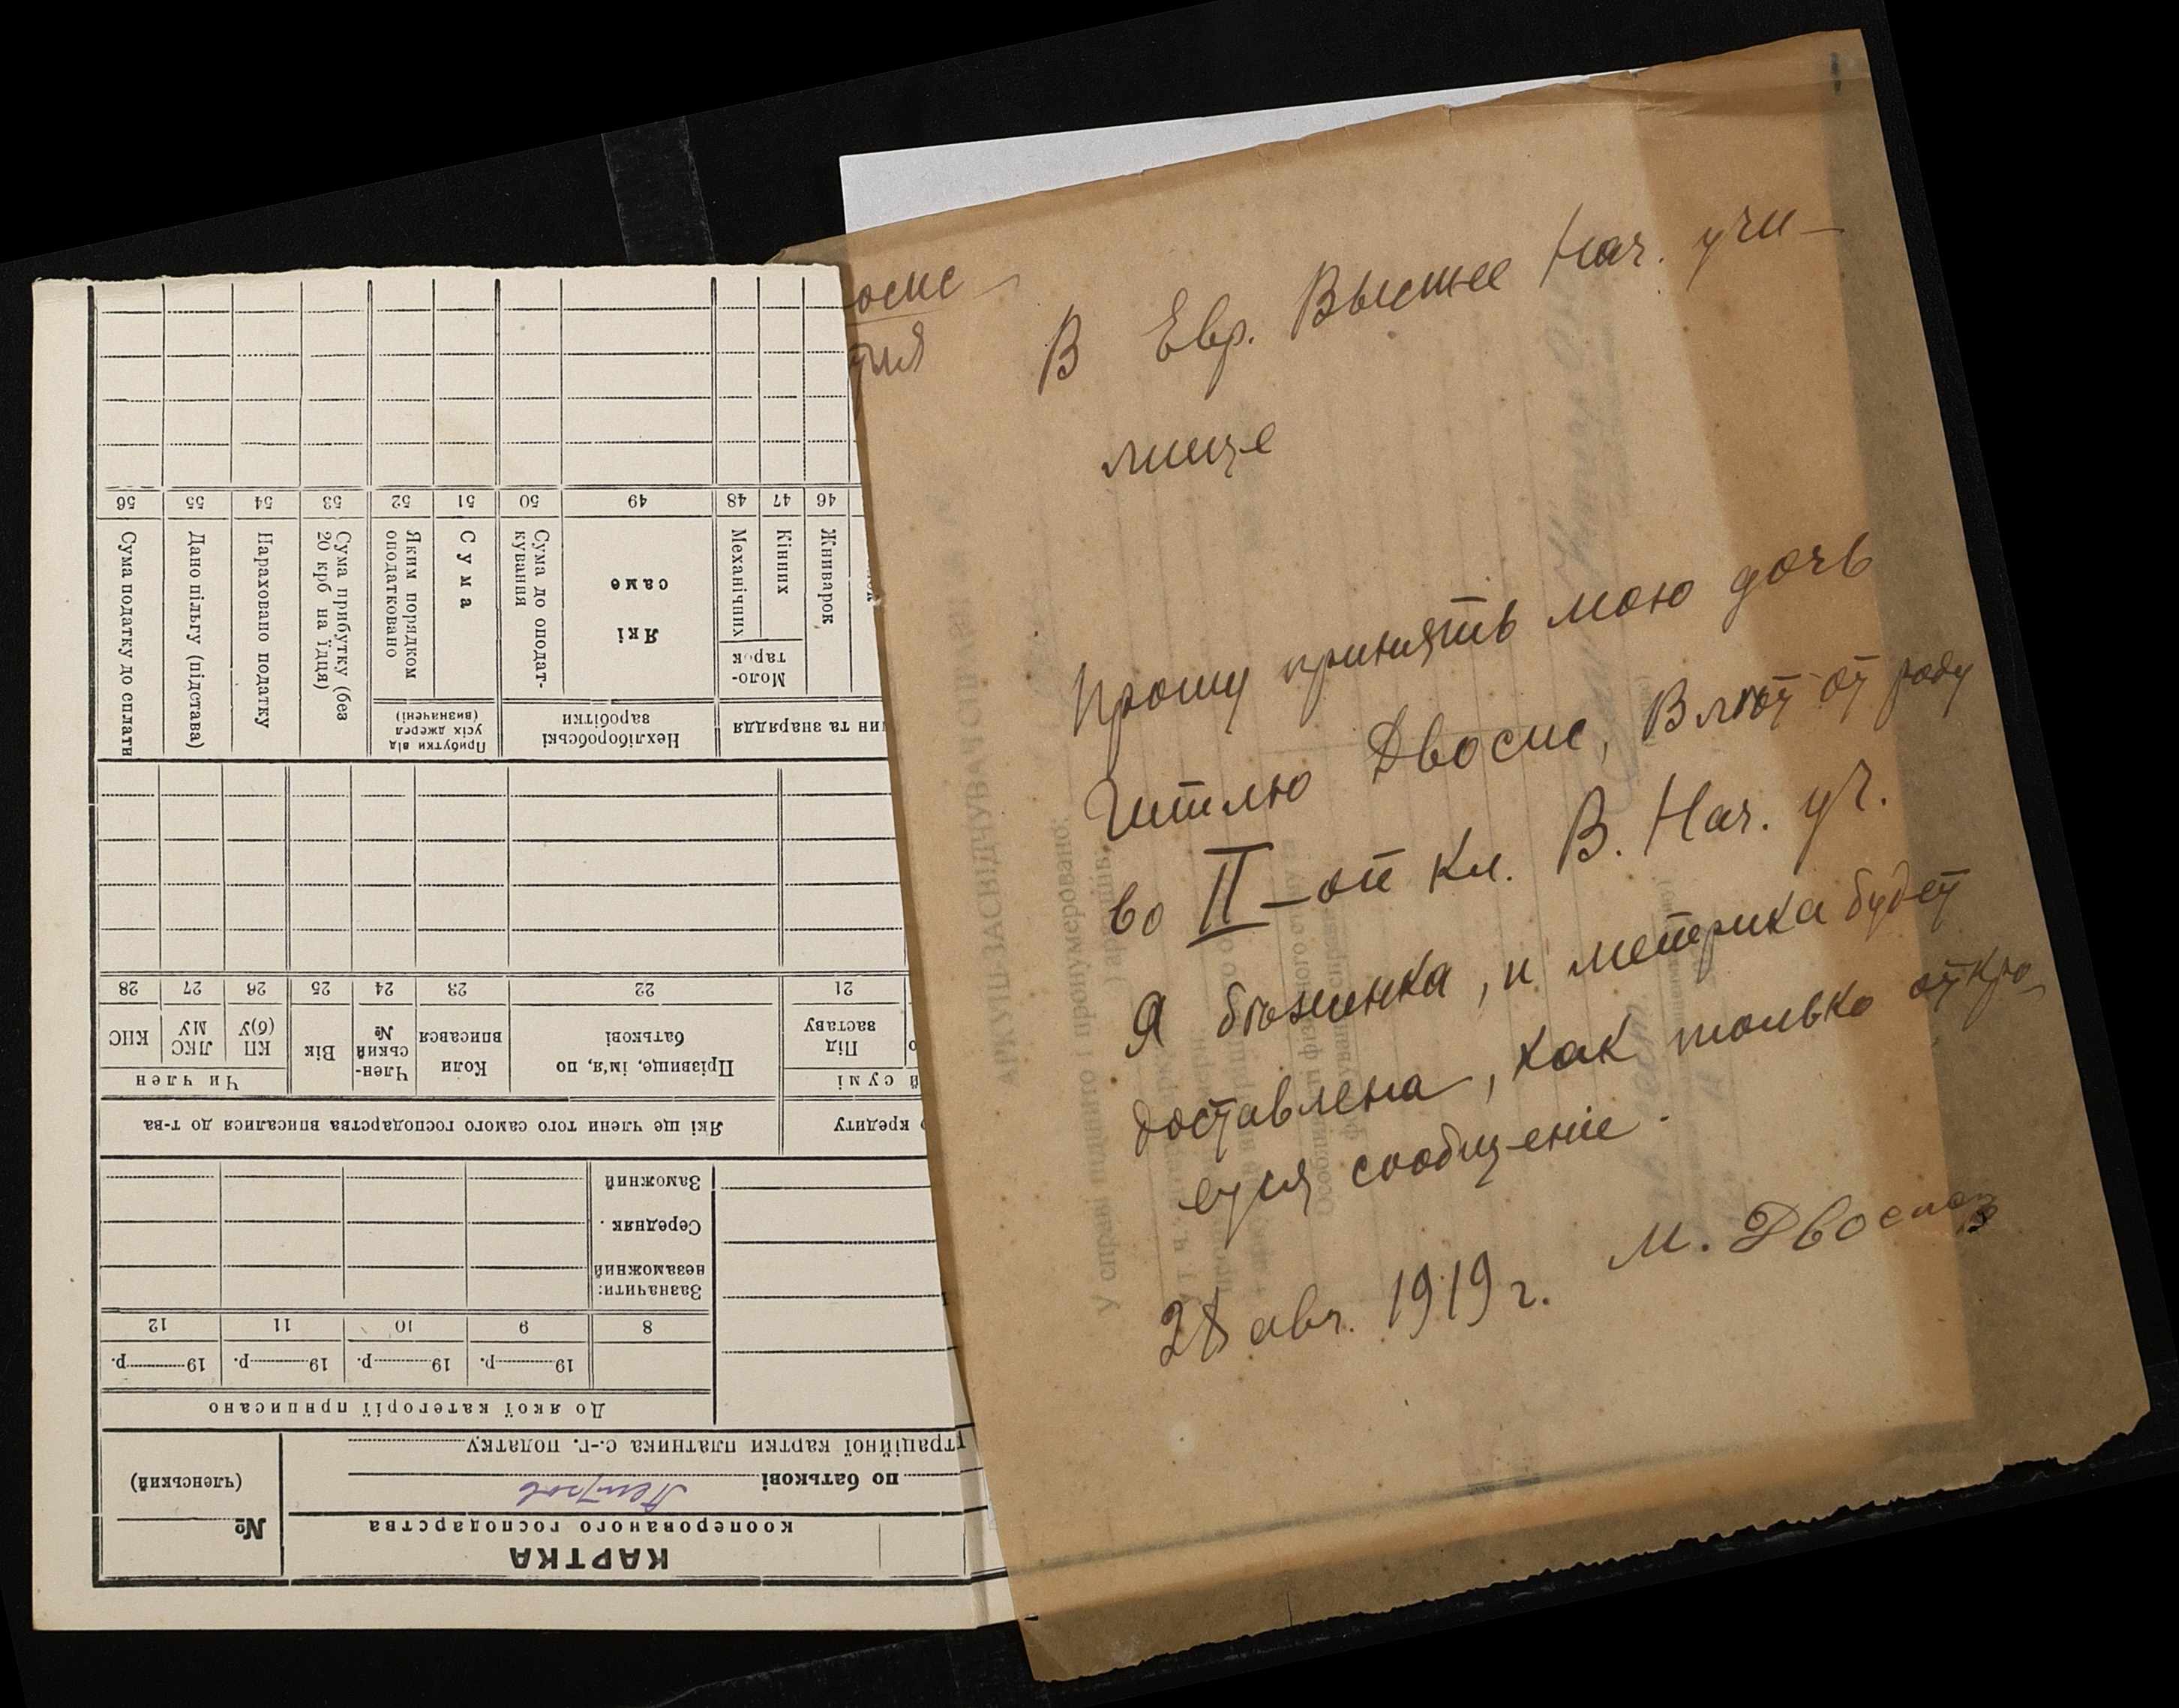 осис
тия
В Евр. Высшее Нач. учи-
лище
Прошу принять мою дочь
Гитлю Двосис, В лѣт от роду
во II-ой Кл. В. Нач. уч.
Я бѣженка, и метрика будет
доставлена, как только откро-
ется сообщеніе.
28 авг. 1919 г. М. Двосис
КАРТКА
кооперованого господарства
№
(членський)
по батькові
траційної картки платника с.-г. податку
До якої категорії приписано
19 р. 19 р. 19 р. 19 р.
8 9 10 11 12
Зазначити:
незаможний
Середняк
Заможний
кредиту
Які ще члени того самого господарства вписалися до т-ва
й сумі
Під заставу
Прізвище, ім'я, по батькові
Коли вписався
Член-ський №
Вік
Чи член
КП (б)У
ЛКС МУ
КНС
21 22 23 24 25 26 27 28
ин та знаряддя
Нехліборобські заробітки
Прибутки від усіх джерел (визначені)
Жниварок
Моло-тарок
Кінних
Механічних
Які саме
Сума до оподат-кування
Сума
Яким порядком оподатковано
Сума прибутку (без 20 крб на їдця)
Нараховано податку
Дано пільгу (підстава)
Сума податку до сплати
46 47 48 49 50 51 52 53 54 55 56